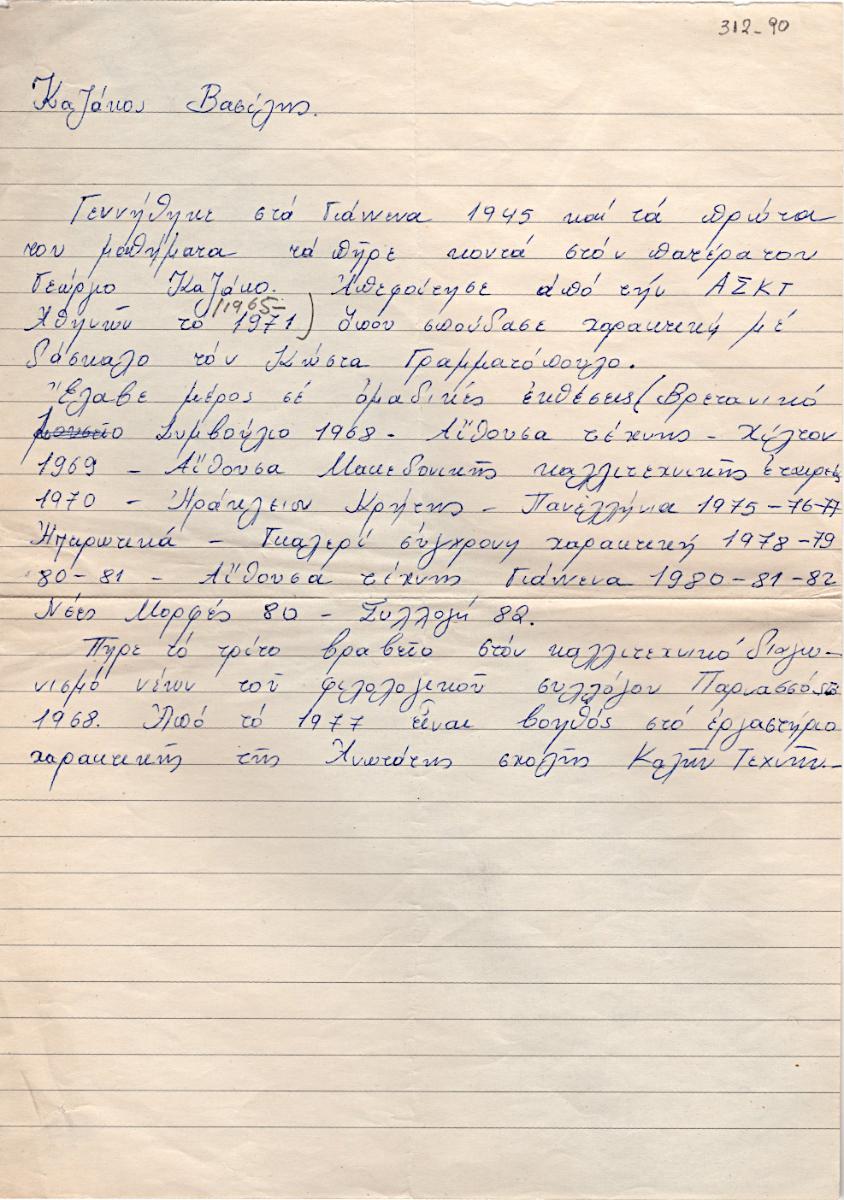 312-90
Καζάκος Βασίλης.
Γεννήθηκε στά Γιάννενα 1945 καί τά πρώτα
του μαθήματα τά πῆρε κοντά στόν πατέρα του
Γεώργιο Καζάκο. Ἀπεφοίτησε ἀπό τήν ΑΣΚΤ
(1965-
Ἀθηνῶν τό 1971) ὅπου σπούδασε χαρακτική μέ
δάσκαλο τόν Κώστα Γραμματόπουλο.
Ἔλαβε μέρος σέ ὁμαδικές ἐκθέσεις (Βρετανικό
μουσεῖο Συμβούλιο 1968 - Αἴθουσα τέχνης - Χίλτον
1969 - Αἴθουσα Μακεδονικῆς καλλιτεχνικῆς ἑταιρείας
1970 - Ἡράκλειον Κρήτης - Πανελλήνια 1975-76-77
Ἠπειρωτικά - Γκαλερί σύγχρονη χαρακτική 1978-79
80-81 - Αἴθουσα τέχνης Γιάννενα 1980-81-82
Νέες Μορφές 80 - Συλλογή 82.
Πῆρε τό τρίτο βραβεῖο στόν καλλιτεχνικό διαγω-
νισμό νέων τοῦ φιλολογικοῦ συλλόγου Παρνασσός
1968. Ἀπό τό 1977 εἶναι βοηθός στό ἐργαστήριο
χαρακτικῆς τῆς Ἀνωτάτης σχολῆς Καλῶν Τεχνῶν.-